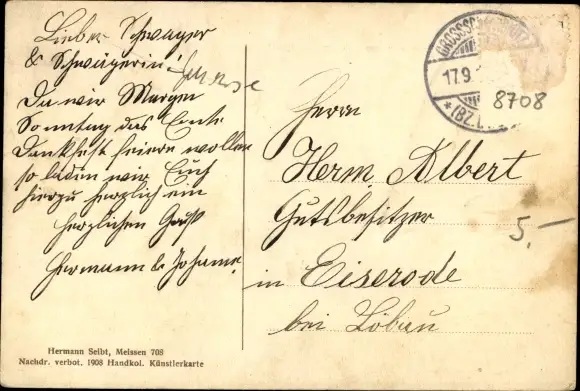 Lieber Schwager
& Schwägerin!
Da wir Morgen
Sonntag das Ernte
Dankfest feiern wollen
so laden wir Euch
hierzu herzlich ein
Herzlichen Gruß
Hermann & Johanne.
Herrn
Herm. Albert
Gutsbesitzer
in Eiserode
bei Löbau
17.9.
8708
5.-
Hermann Seibt, Meissen 708
Nachdr. verbot. 1908 Handkol. Künstlerkarte